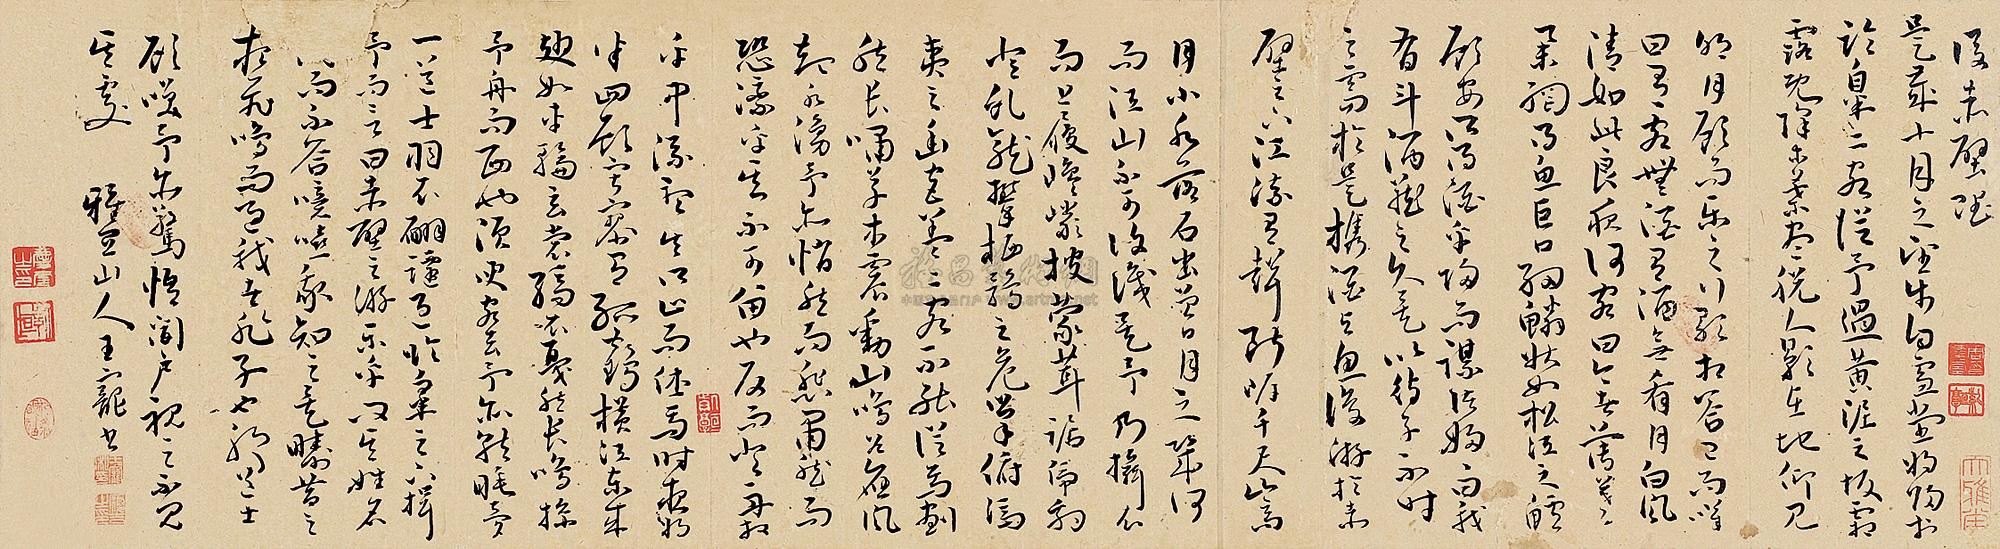 後赤壁賦
是歲十月之望步自雪堂將歸於
臨皋二客從予過黃泥之坂霜
露既降木葉盡脫人影在地仰見
明月顧而樂之行歌相答已而嘆
曰有客無酒有酒無肴月白風
清如此良夜何客曰今者薄暮
舉網得魚巨口細鱗狀如松江之鱸
顧安所得酒乎歸而謀諸婦婦曰我
有斗酒藏之久矣以待子不時
之需於是攜酒與魚復游於赤
壁之下江流有聲斷岸千尺山高
月小水落石出曾日月之幾何
而江山不可復識矣予乃攝衣
而上履巉巖披蒙茸踞虎豹
登虬龍攀栖鶻之危巢俯馮
夷之幽宮蓋二客不能從焉劃
然長嘯草木震動山鳴谷應風
起水湧予亦悄然而悲肅然而
恐凜乎其不可留也反而登舟放
乎中流聽其所止而休焉時夜將
半四顧寂寥有孤鶴橫江東來
翅如車輪玄裳縞衣戛然長鳴掠
予舟而西也須臾客去予亦就睡夢
一道士羽衣翩躚過臨皋之下揖
予而言曰赤壁之游樂乎問其姓名
俛而不答嗚呼噫嘻我知之矣疇昔之
夜飛鳴而過我者非子也耶道士
顧笑予亦驚悟開戶視之不見
其處 雅宜山人王寵書